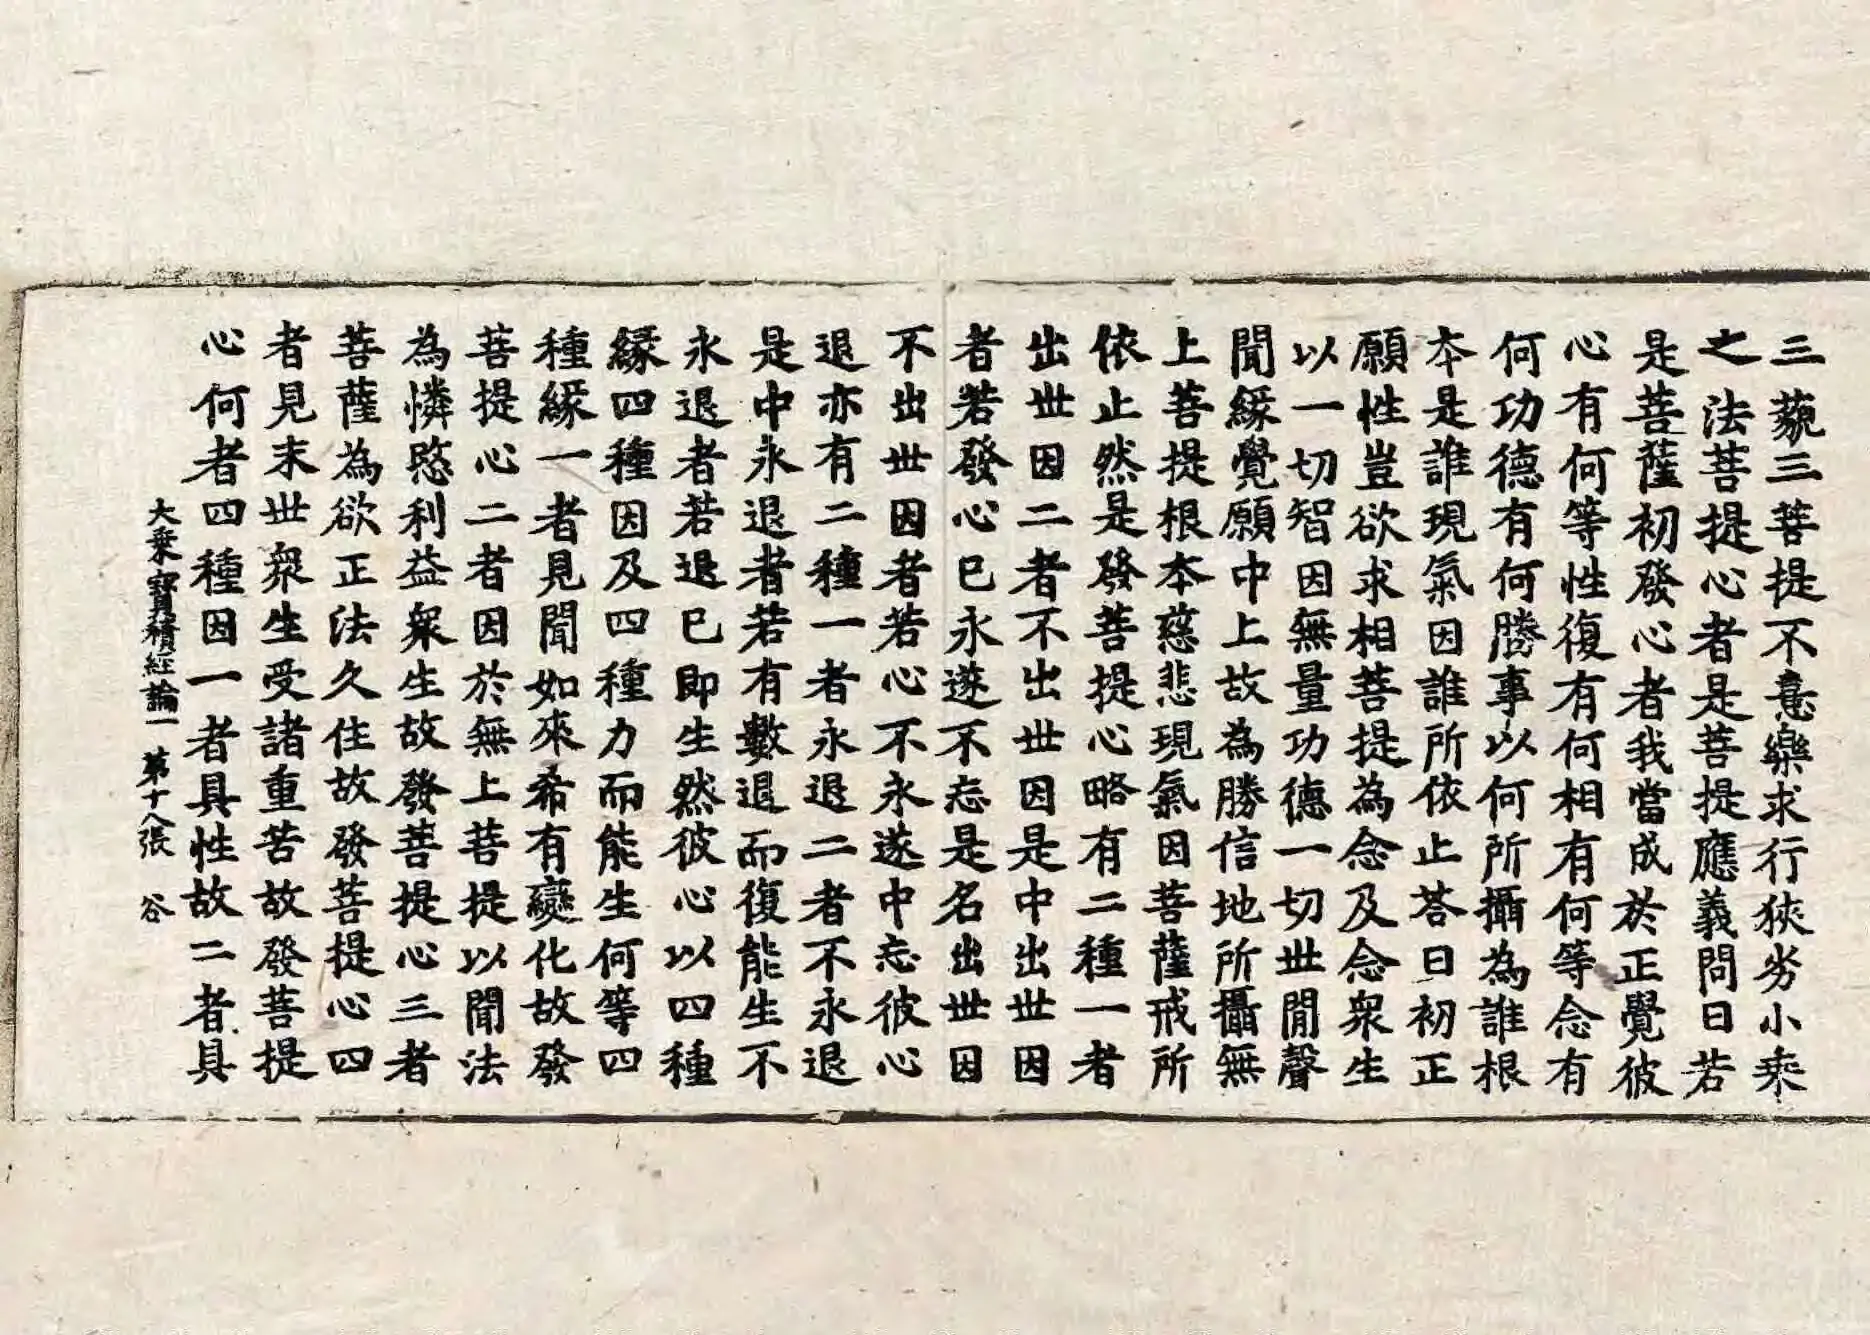 三藐三菩提不意樂求行狹劣小乗
之法菩提心者是菩提應義問曰若
是菩薩初發心者我當成於正覺彼
心有何等性復有何相有何等念有
何功德有何勝事以何所攝為誰根
本是誰現氣因誰所依止荅曰初正
願性豈欲求相菩提為念及念衆生
以一切智因無量功德一切世閒聲
聞縁覺願中上故為勝信地所攝無
上菩提根本慈悲現氣因菩薩戒所
依止然是發菩提心略有二種一者
出世因二者不出世因是中出世因
者若發心已永遂不忘是名出世因
不出世因者若心不永遂中忘彼心
退亦有二種一者永退二者不永退
是中永退者若有數退而復能生不
永退者若退已即生然彼心以四種
縁四種因及四種力而能生何等四
種縁一者見聞如來希有變化故發
菩提心二者因於無上菩提以聞法
為憐愍利益衆生故發菩提心三者
菩薩為欲正法久住故發菩提心四
者見末世衆生受諸重苦故發菩提
心何者四種因一者具性故二者具
大乗寶積經論一 第十八張 谷